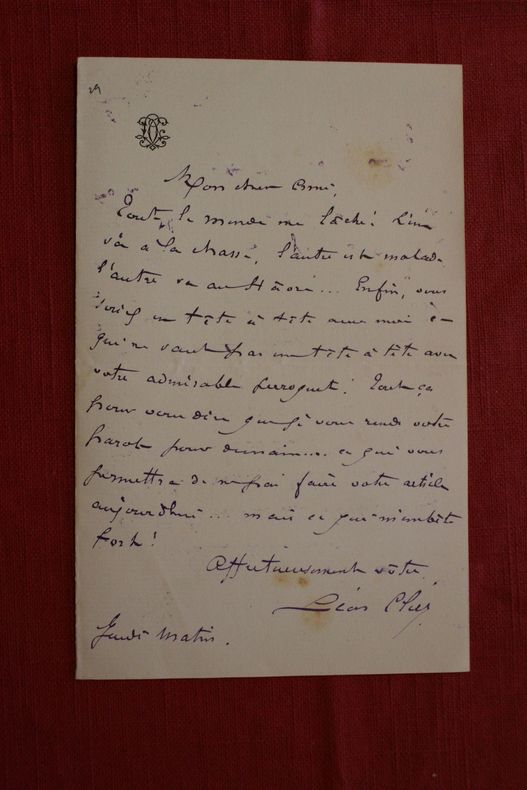 Mon cher Ami,
Tout le monde me lâche! L'un
va à la chasse, l'autre est malade
l'autre va au Hâvre... Enfin, vous
un tête à tête avec moi -
qui ne vaut pas un tête à tête avec
votre admirable perroquet! Tout ça
pour vous dire que je vous rends votre
parole pour demain.... ce qui vous
permettra de faire votre article
aujourd'hui... mais ce qui m'embête
fort!
Affectueusement vôtre,
Léon
Jeudi matin.